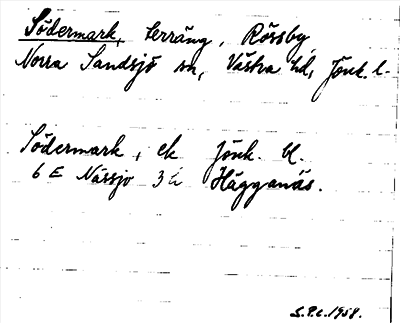 Södermark, terräng, Rössby,
Norra Sandsjö sn, Västra hd, Jönk. l.
Södermark, ek Jönk. bl.
6 E Nässjö 3 h Hägganäs.
S.P.C. 1958.